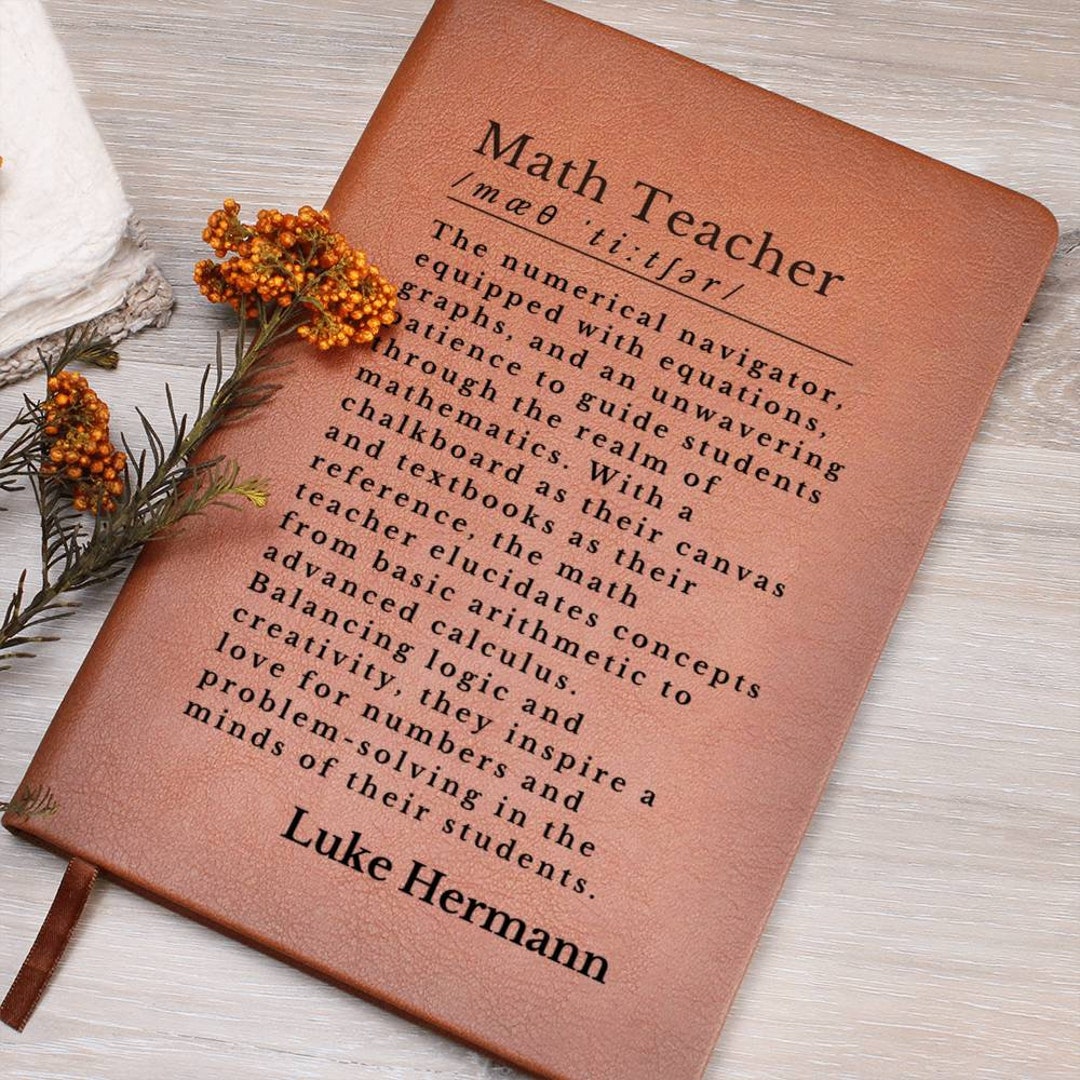 Math Teacher
/mæθ ˈtiːtʃər/
The numerical navigator,
equipped with equations,
graphs, and an unwavering
patience to guide students
through the realm of
mathematics. With a
chalkboard as their canvas
and textbooks as their
reference, the math
teacher elucidates concepts
from basic arithmetic to
advanced calculus.
Balancing logic and
creativity, they inspire a
love for numbers and
problem-solving in the
minds of their students.
Luke Hermann